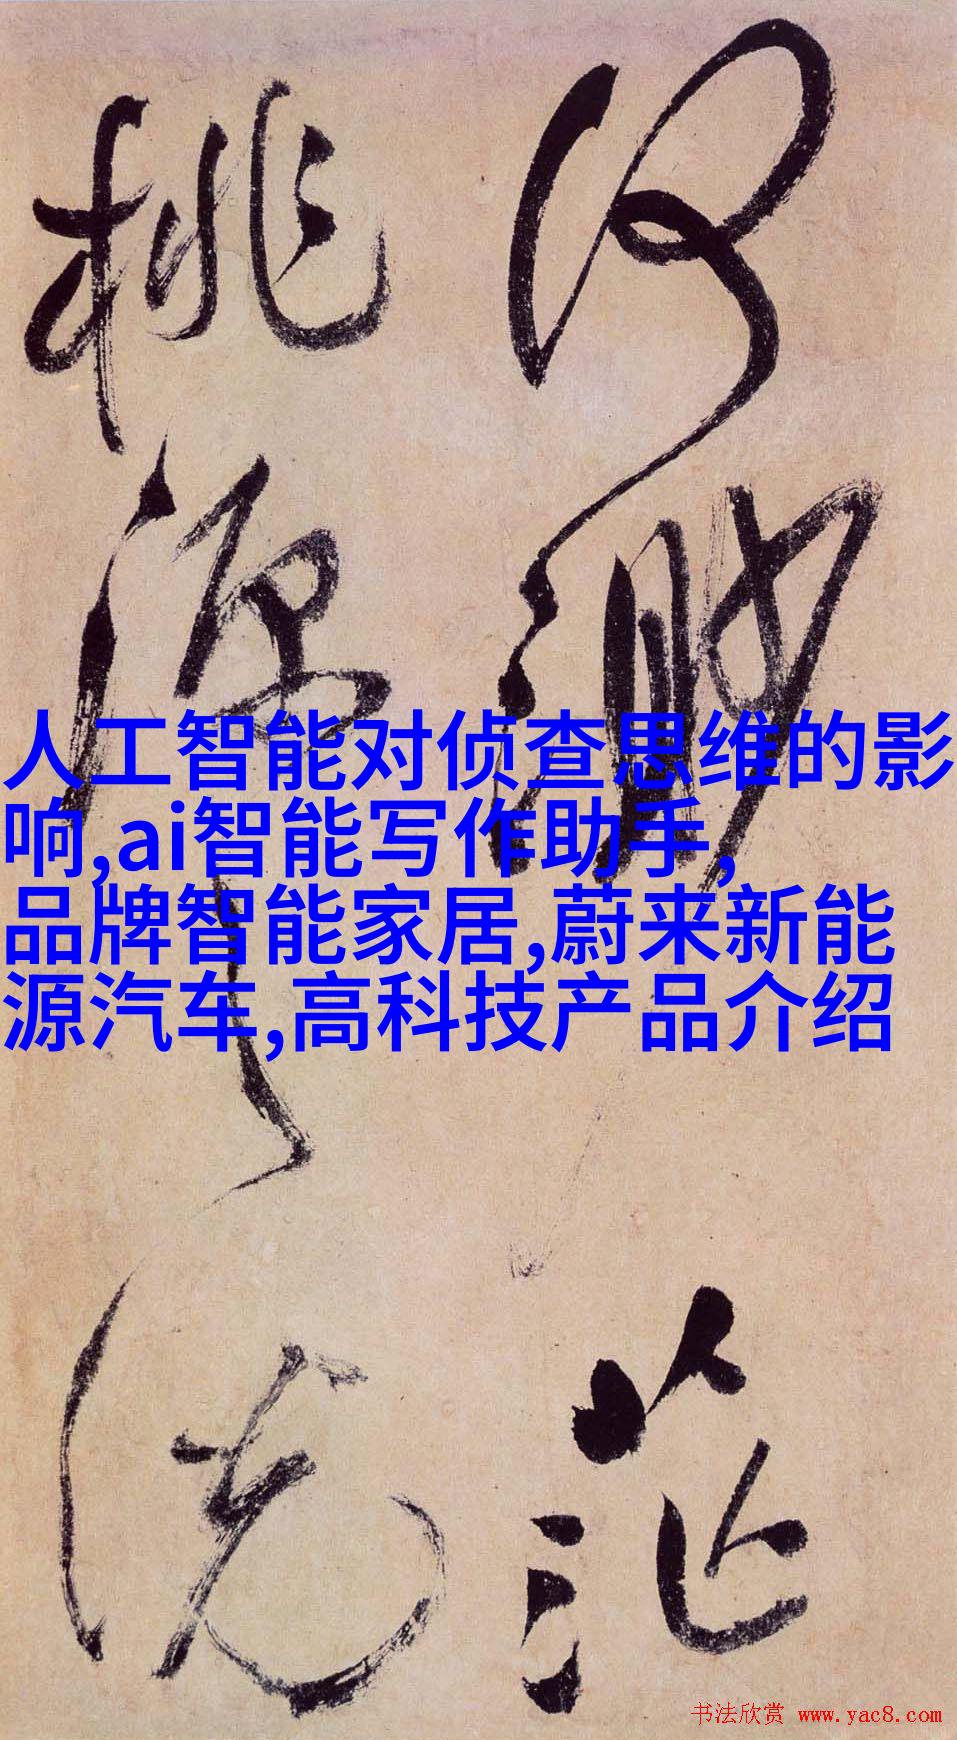 何渺茫
桃源之說
人工智能对侦查思维的影
响,ai智能写作助手,
品牌智能家居,蔚来新能
源汽车,高科技产品介绍
书法欣赏 www.yac8.com